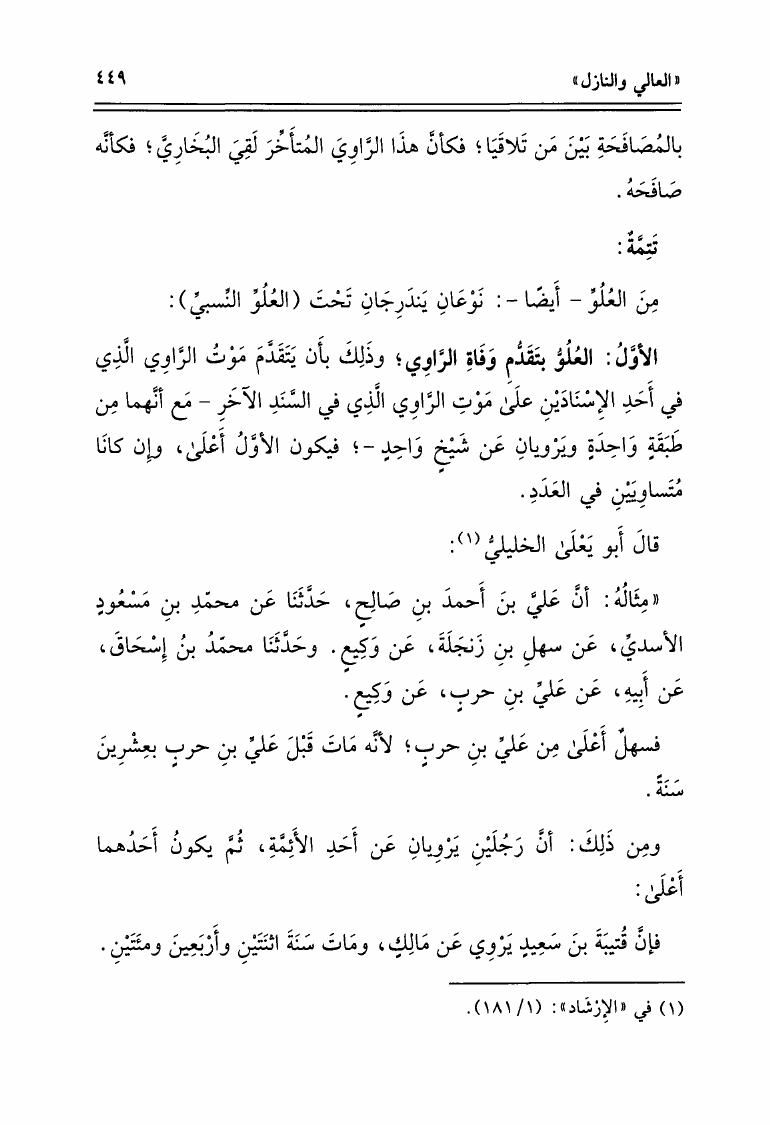 «العالي والنازل» ٤٤٩
بالمُصَافَحَةِ بَيْنَ مَن تَلاقَيَا؛ فكأنَّ هذَا الرَّاوِيَ المُتأَخِّرَ لَقِيَ البُخَارِيَّ؛ فكأنَّه
صَافَحَهُ.
تَتِمَّةٌ:
مِنَ العُلُوِّ - أَيضًا -: نَوْعَانِ يَندَرِجَانِ تَحْتَ (العُلُوِّ النِّسبيِّ):
الأوَّلُ: العُلُوُّ بتَقَدُّمِ وَفَاةِ الرَّاوِي؛ وذَلِكَ بأن يَتَقَدَّمَ مَوْتُ الرَّاوِي الَّذِي
في أَحَدِ الإسْنَادَيْنِ علَىٰ مَوْتِ الرَّاوِي الَّذِي في السَّنَدِ الآخَرِ - مَع أنَّهما مِن
طَبَقَةٍ وَاحِدَةٍ ويَرْويانِ عَن شَيْخٍ وَاحِدٍ -؛ فيكون الأوَّلُ أَعْلَىٰ، وإن كانَا
مُتَساوِيَيْنِ في العَدَدِ.
قالَ أَبو يَعْلَىٰ الخليليُّ(١):
«مِثَالُهُ: أنَّ عَليَّ بنَ أَحمدَ بنِ صَالِحٍ، حَدَّثَنَا عَن محمّدِ بنِ مَسْعُودٍ
الأسديِّ، عَن سهلِ بنِ زَنجَلَةَ، عَن وَكِيعٍ. وحَدَّثَنَا محمّدُ بنُ إِسْحَاقَ،
عَن أَبِيهِ، عَن عَليِّ بنِ حربٍ، عَن وَكِيعٍ.
فسهلٌ أَعْلَىٰ مِن عَليِّ بنِ حربٍ؛ لأنَّه مَاتَ قَبْلَ عَليِّ بنِ حربٍ بعِشْرِينَ
سَنَةً.
ومِن ذَلِكَ: أنَّ رَجُلَيْنِ يَرْوِيانِ عَن أَحَدِ الأَئِمَّةِ، ثُمَّ يكونُ أَحَدُهما
أَعْلَىٰ:
فإنَّ قُتيبَةَ بنَ سَعِيدٍ يَرْوِي عَن مَالِكٍ، ومَاتَ سَنَةَ اثنَتَيْنِ وأَرْبَعِينَ ومئَتَيْنِ.
(١) في «الإِرْشَاد»: (١/ ١٨١).